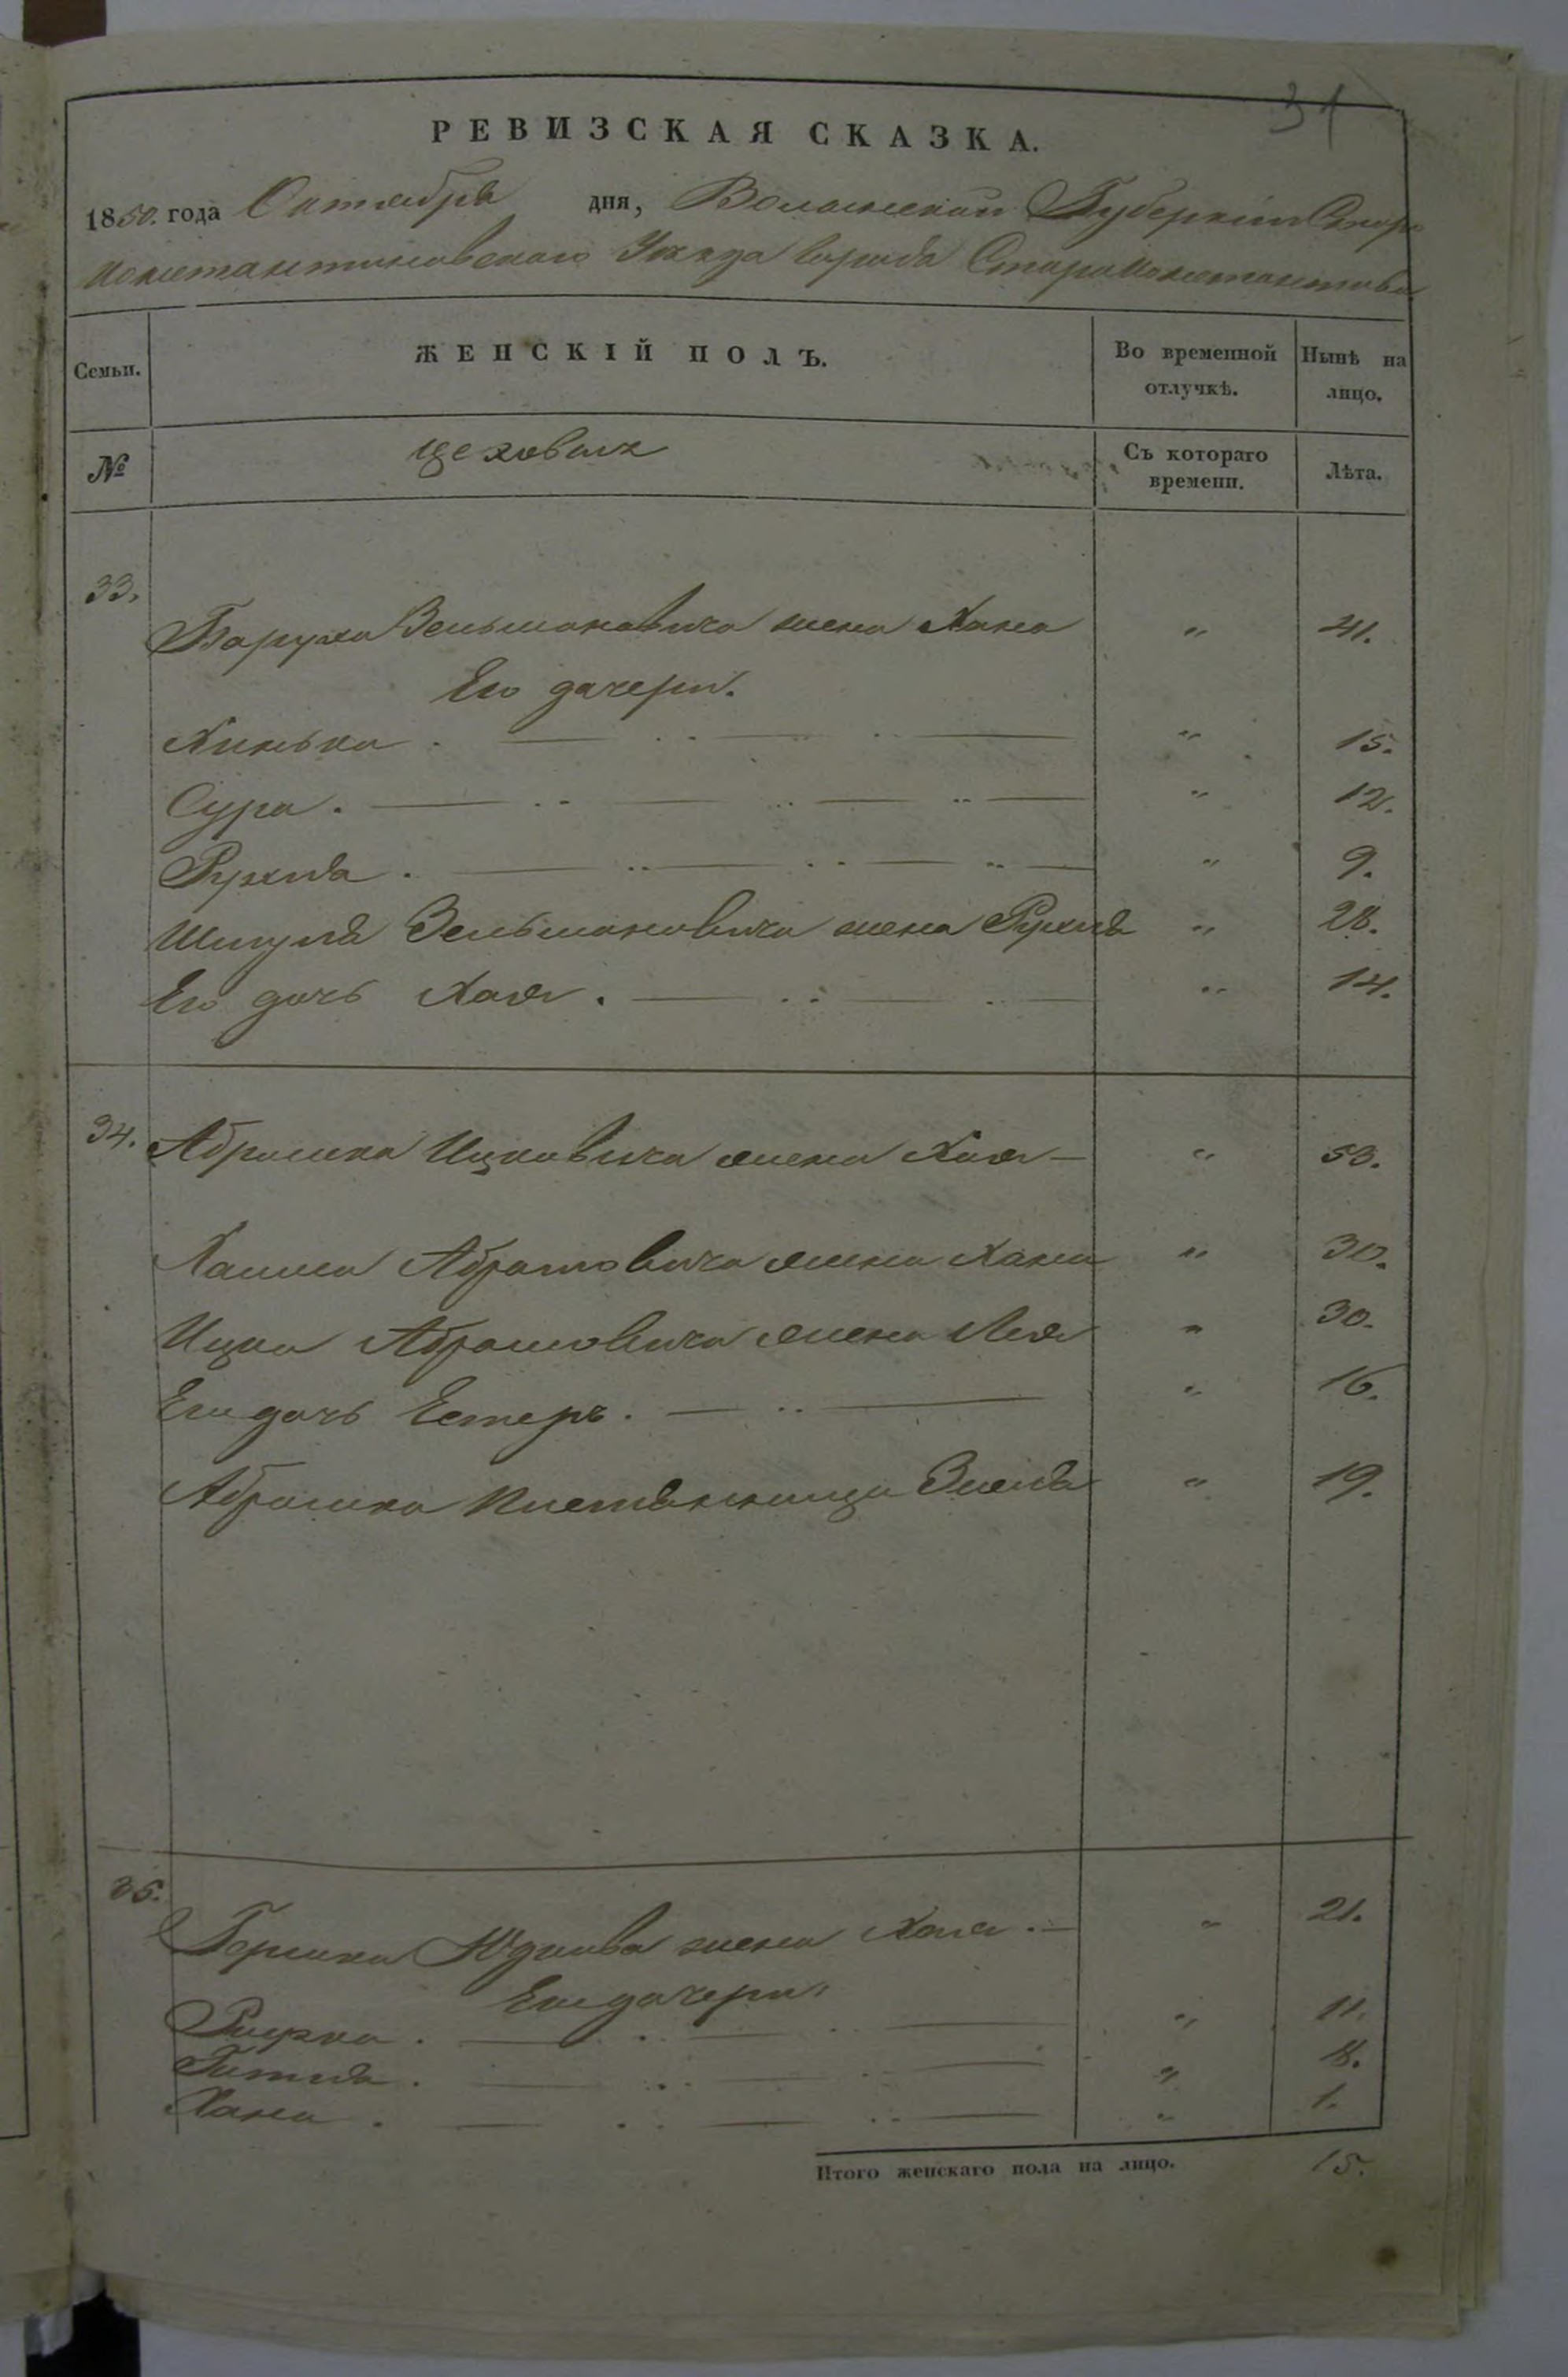 31
РЕВИЗСКАЯ СКАЗКА.
1850. года Октября дня, Волынской Губерніи Старо
константиновскаго Уезда города Староконстантинова
Семьи. ЖЕНСКІЙ ПОЛЪ. Во временной отлучкѣ. Нынѣ на лицо.
№ цеховыхъ Съ котораго времени. Лѣта.
33.
Баруха Зельмановича жена Хана " 41.
Его дочери.
Хинька . " 15.
Сура . " 12.
Рухля . " 9.
Шмуля Зельмановича жена Рухля " 28.
Его дочь Хая . " 14.
34. Абрамка Ицковича жена Хая " 53.
Хаима Абрамовича жена Хана " 30.
Ицка Абрамовича жена Лея " 30.
Его дочь Естеръ . " 16.
Абрамка " 19.
35.
Гершка Юдкова жена Хая . " 21.
Его дочери
Ривка . " 11.
Гитля . " 8.
Хана . " 1.
Итого женскаго пола на лицо. 15.